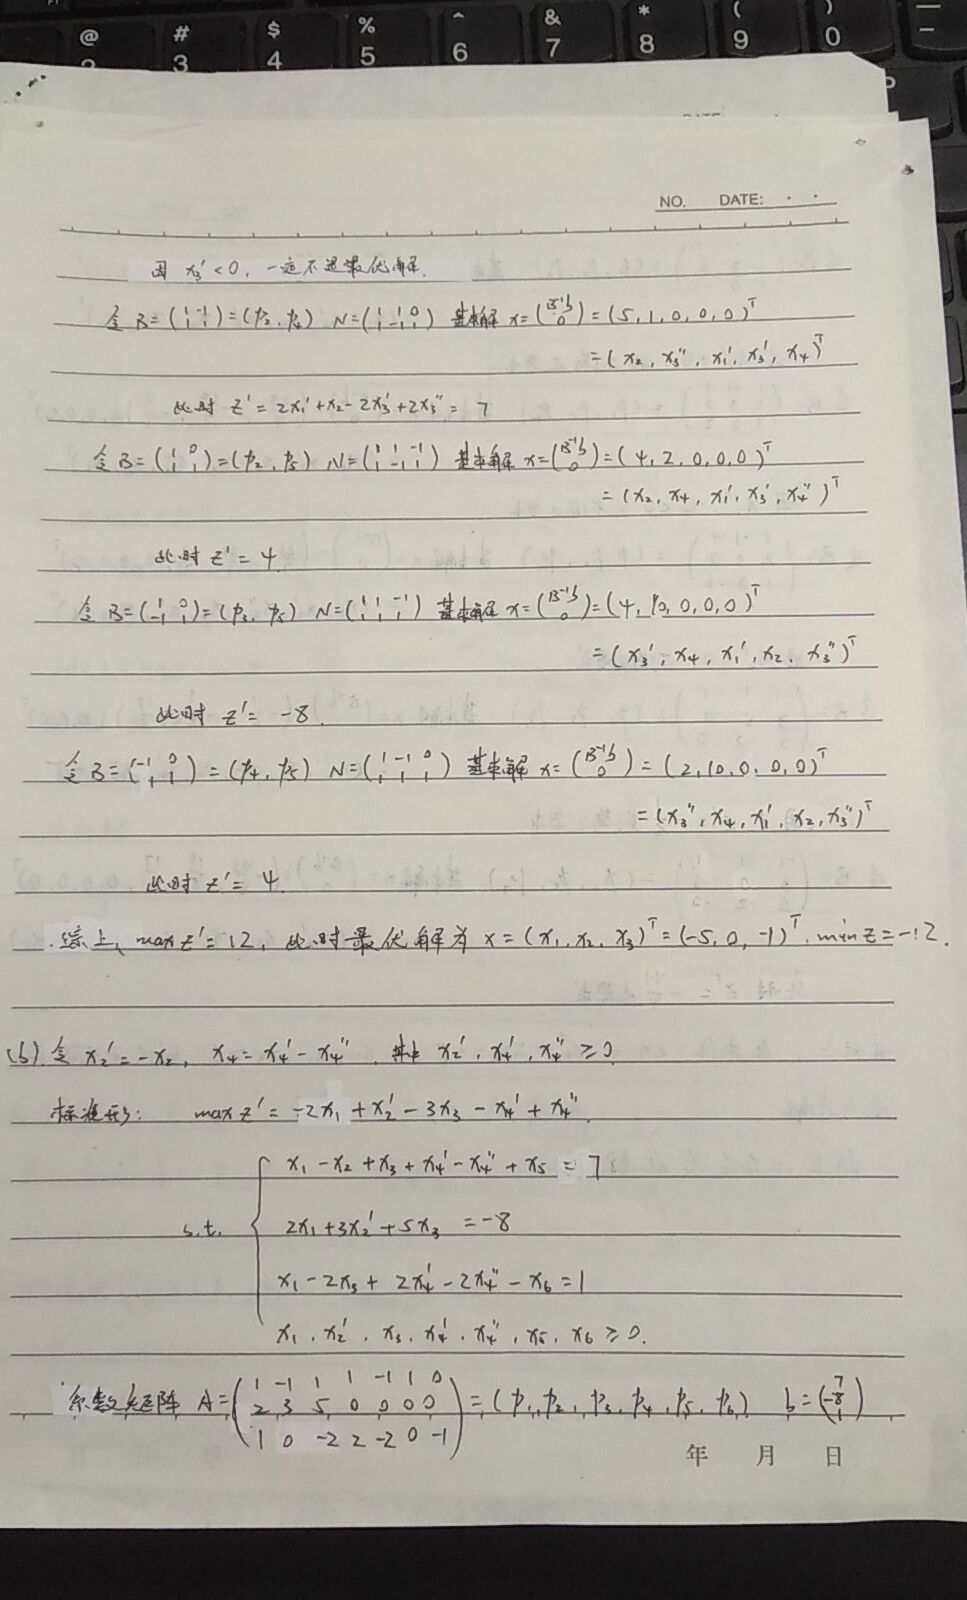 @ # $ % ^ & * ( )
2 3 4 5 6 7 8 9 0
NO. DATE: · ·
因 x₃' < 0, 一定不是最优解.
令 B = (1 -1; 1 1) = (p₂, p₄) N = (1 1 0; 1 -1 1) 基本解 x = (B⁻¹b; 0) = (5, 1, 0, 0, 0)ᵀ
= (x₂, x₃'', x₁', x₃', x₄)ᵀ
此时 z' = 2x₁' + x₂ - 2x₃' + 2x₃'' = 7
令 B = (1 0; 1 1) = (p₂, p₅) N = (1 1 -1; 1 -1 1) 基本解 x = (B⁻¹b; 0) = (4, 2, 0, 0, 0)ᵀ
= (x₂, x₄, x₁', x₃', x₄'')ᵀ
此时 z' = 4
令 B = (1 0; -1 1) = (p₃, p₅) N = (1 1 -1; 1 1 1) 基本解 x = (B⁻¹b; 0) = (4, 10, 0, 0, 0)ᵀ
= (x₃', x₄, x₁', x₂, x₃'')ᵀ
此时 z' = -8.
令 B = (-1 0; 1 1) = (p₄, p₅) N = (1 -1 0; 1 1 1) 基本解 x = (B⁻¹b; 0) = (2, 10, 0, 0, 0)ᵀ
= (x₃'', x₄, x₁', x₂, x₃'')ᵀ
此时 z' = 4.
综上, max z' = 12, 此时最优解为 x = (x₁, x₂, x₃)ᵀ = (-5, 0, -1)ᵀ. min z = -12.
(b) 令 x₂' = -x₂, x₄ = x₄' - x₄'' 其中 x₂', x₄', x₄'' ≥ 0
标准形: max z' = -2x₁ + x₂' - 3x₃ - x₄' + x₄''
x₁ - x₂ + x₃ + x₄' - x₄'' + x₅ = 7
s.t. 2x₁ + 3x₂' + 5x₃ = -8
x₁ - 2x₃ + 2x₄' - 2x₄'' - x₆ = 1
x₁, x₂', x₃, x₄', x₄'', x₅, x₆ ≥ 0.
系数矩阵 A = (1 -1 1 1 -1 1 0; 2 3 5 0 0 0 0; 1 0 -2 2 -2 0 -1) = (p₁, p₂, p₃, p₄, p₅, p₆) b = (7; -8; 1)
年 月 日